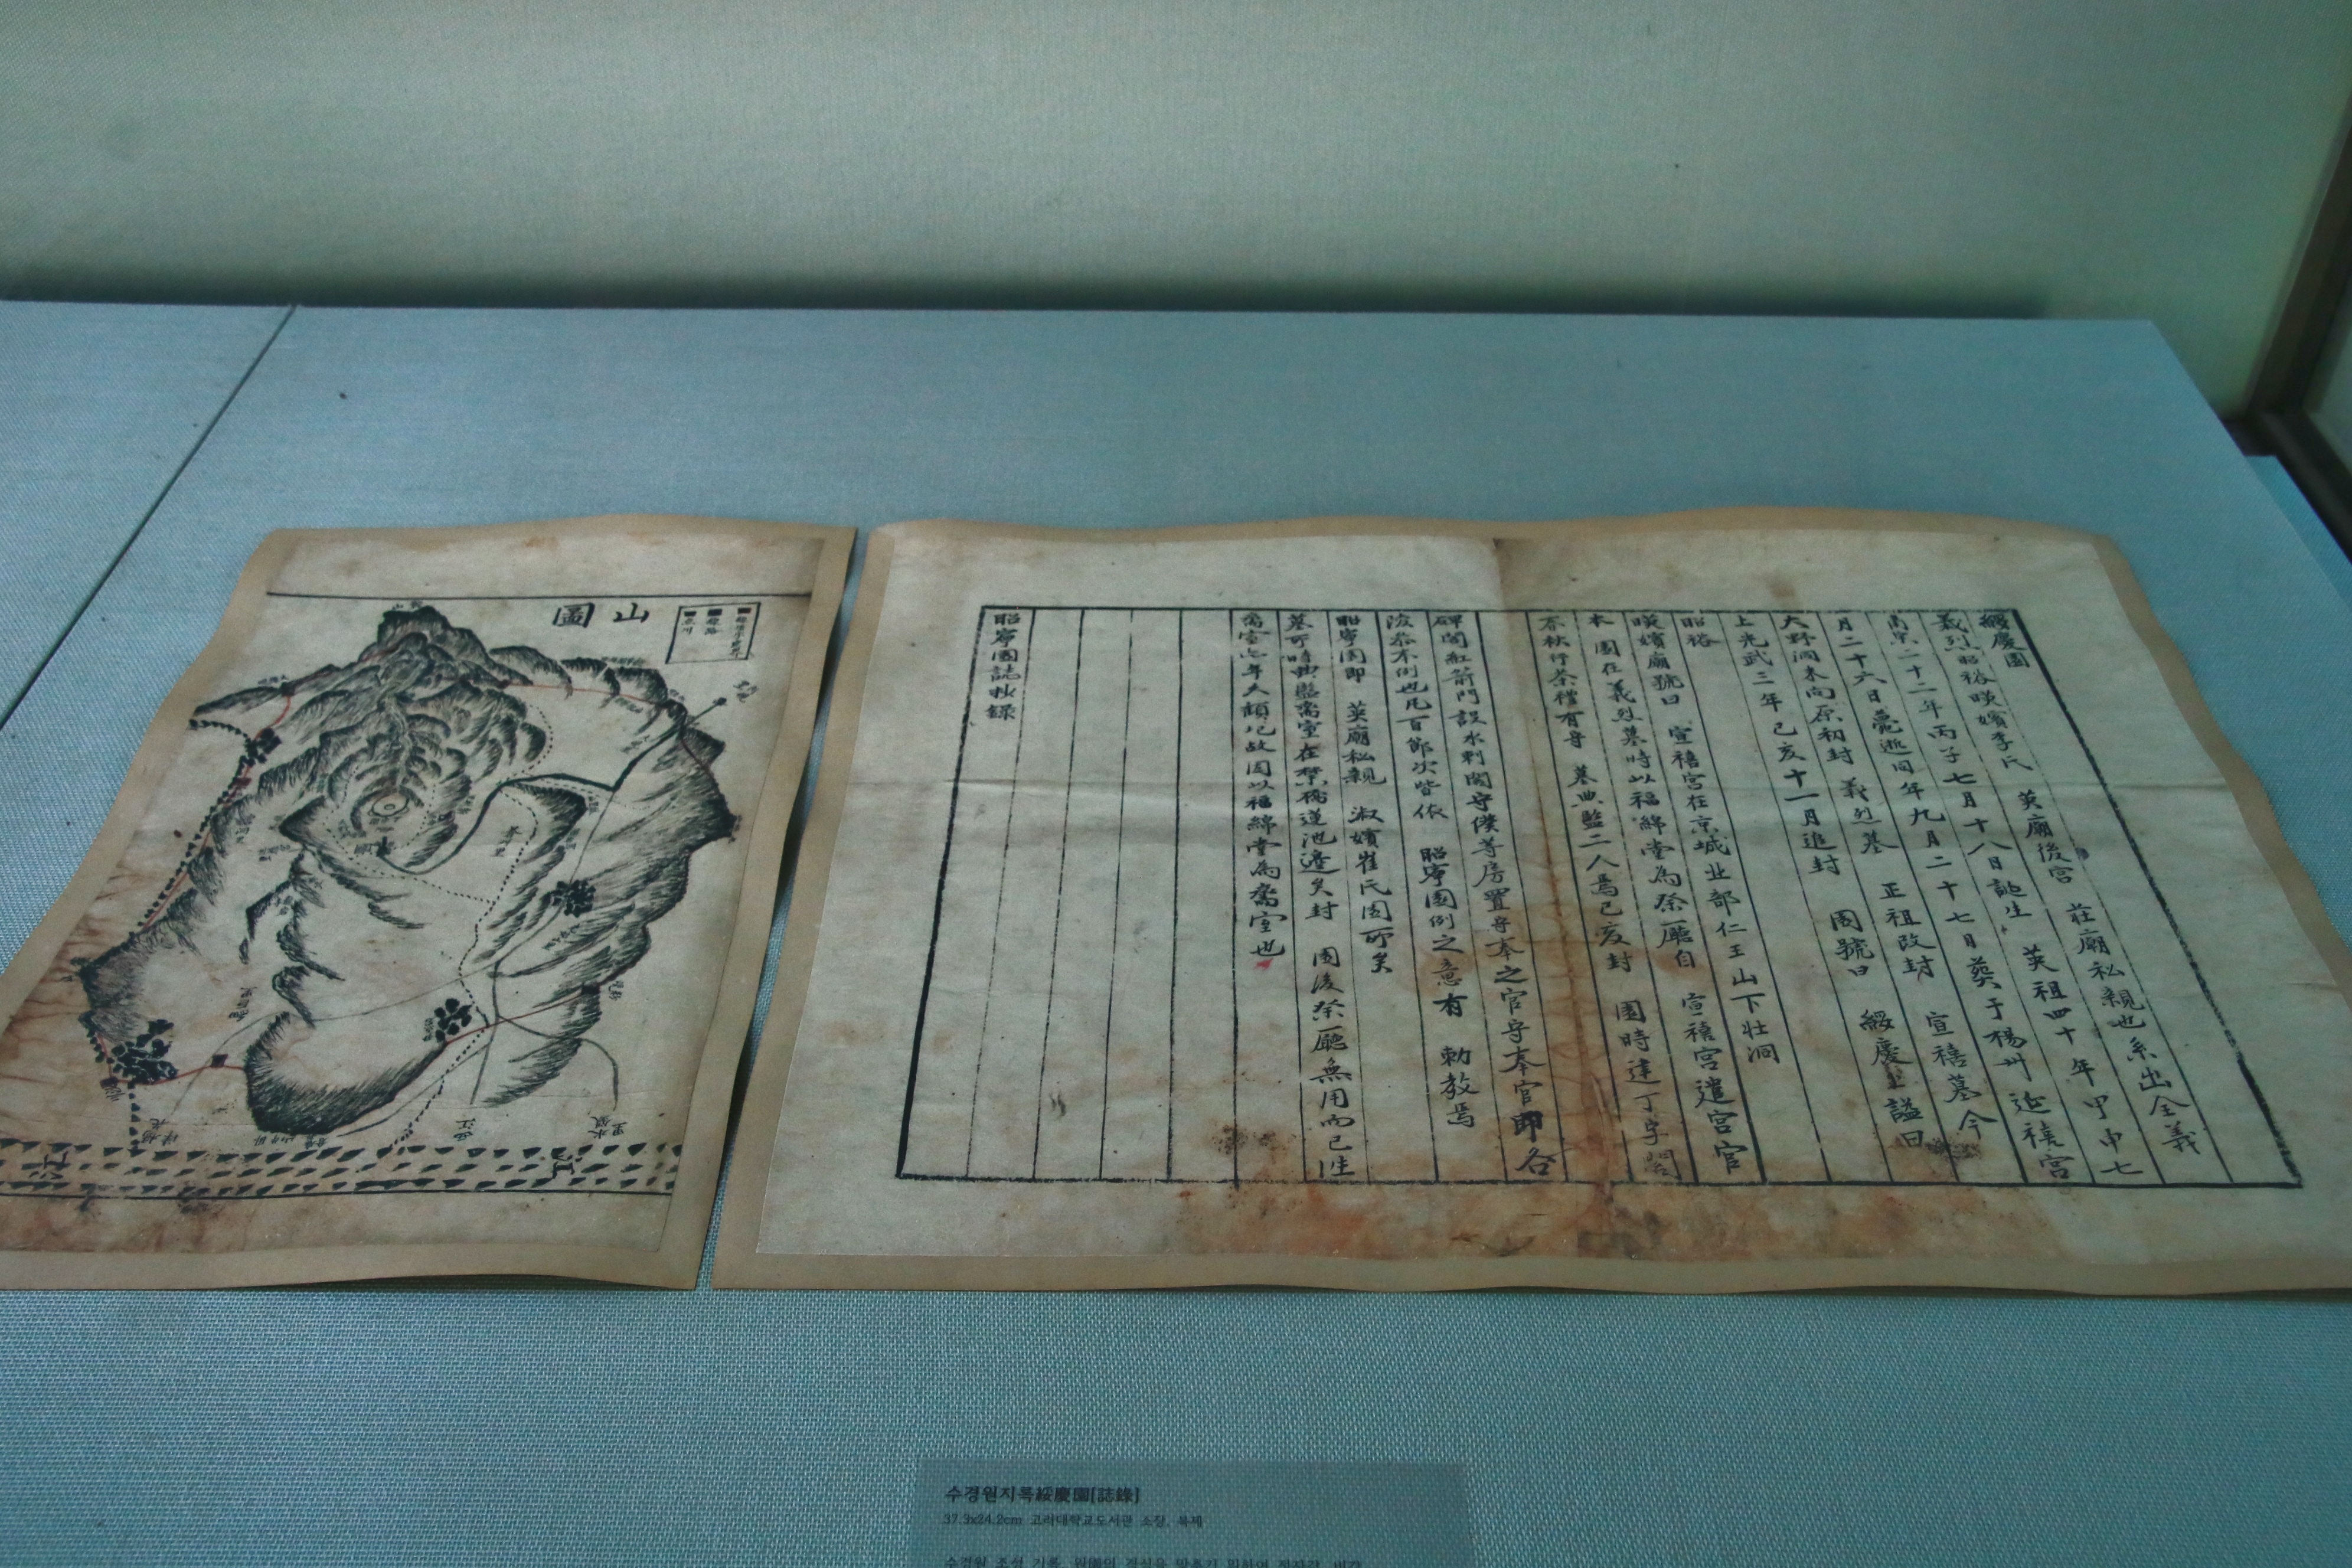 綏慶園
義烈昭裕暎嬪李氏 英廟後宮 莊廟私親也系出全義
肅宗二十二年丙子七月十八日誕生 英祖四十年甲申七
月二十六日薨逝同年九月二十七日葬于楊州延禧宮
大野洞未向原初封 義烈墓 正祖改封 宣禧墓今
上光武三年己亥十一月追封 園號曰 綏慶上諡曰
昭裕
暎嬪廟號曰 宣禧宮在京城北部仁王山下壯洞
本 園在義烈墓時以福綿堂為祭廳自 宣禧宮遣宮官
春秋行茶禮有守 墓典監二人焉己亥封 園時建丁字閣
碑閣紅箭門設水剌間守僕等房置守奉之官守奉官即各
陵參奉例也凡百節次皆依 昭寧園例之意有 勅教焉
昭寧園即 英廟私親 淑嬪崔氏園所矣
墓時典監齋室在橋蓮池邊矣封 園後祭廳無用而已往
齋室年久頹圮故因以福綿堂為齋室也
昭寧園誌抄錄
山圖
江
수경원지록綏慶園[誌錄]
37.3x24.2cm 고려대학교도서관 소장, 복제